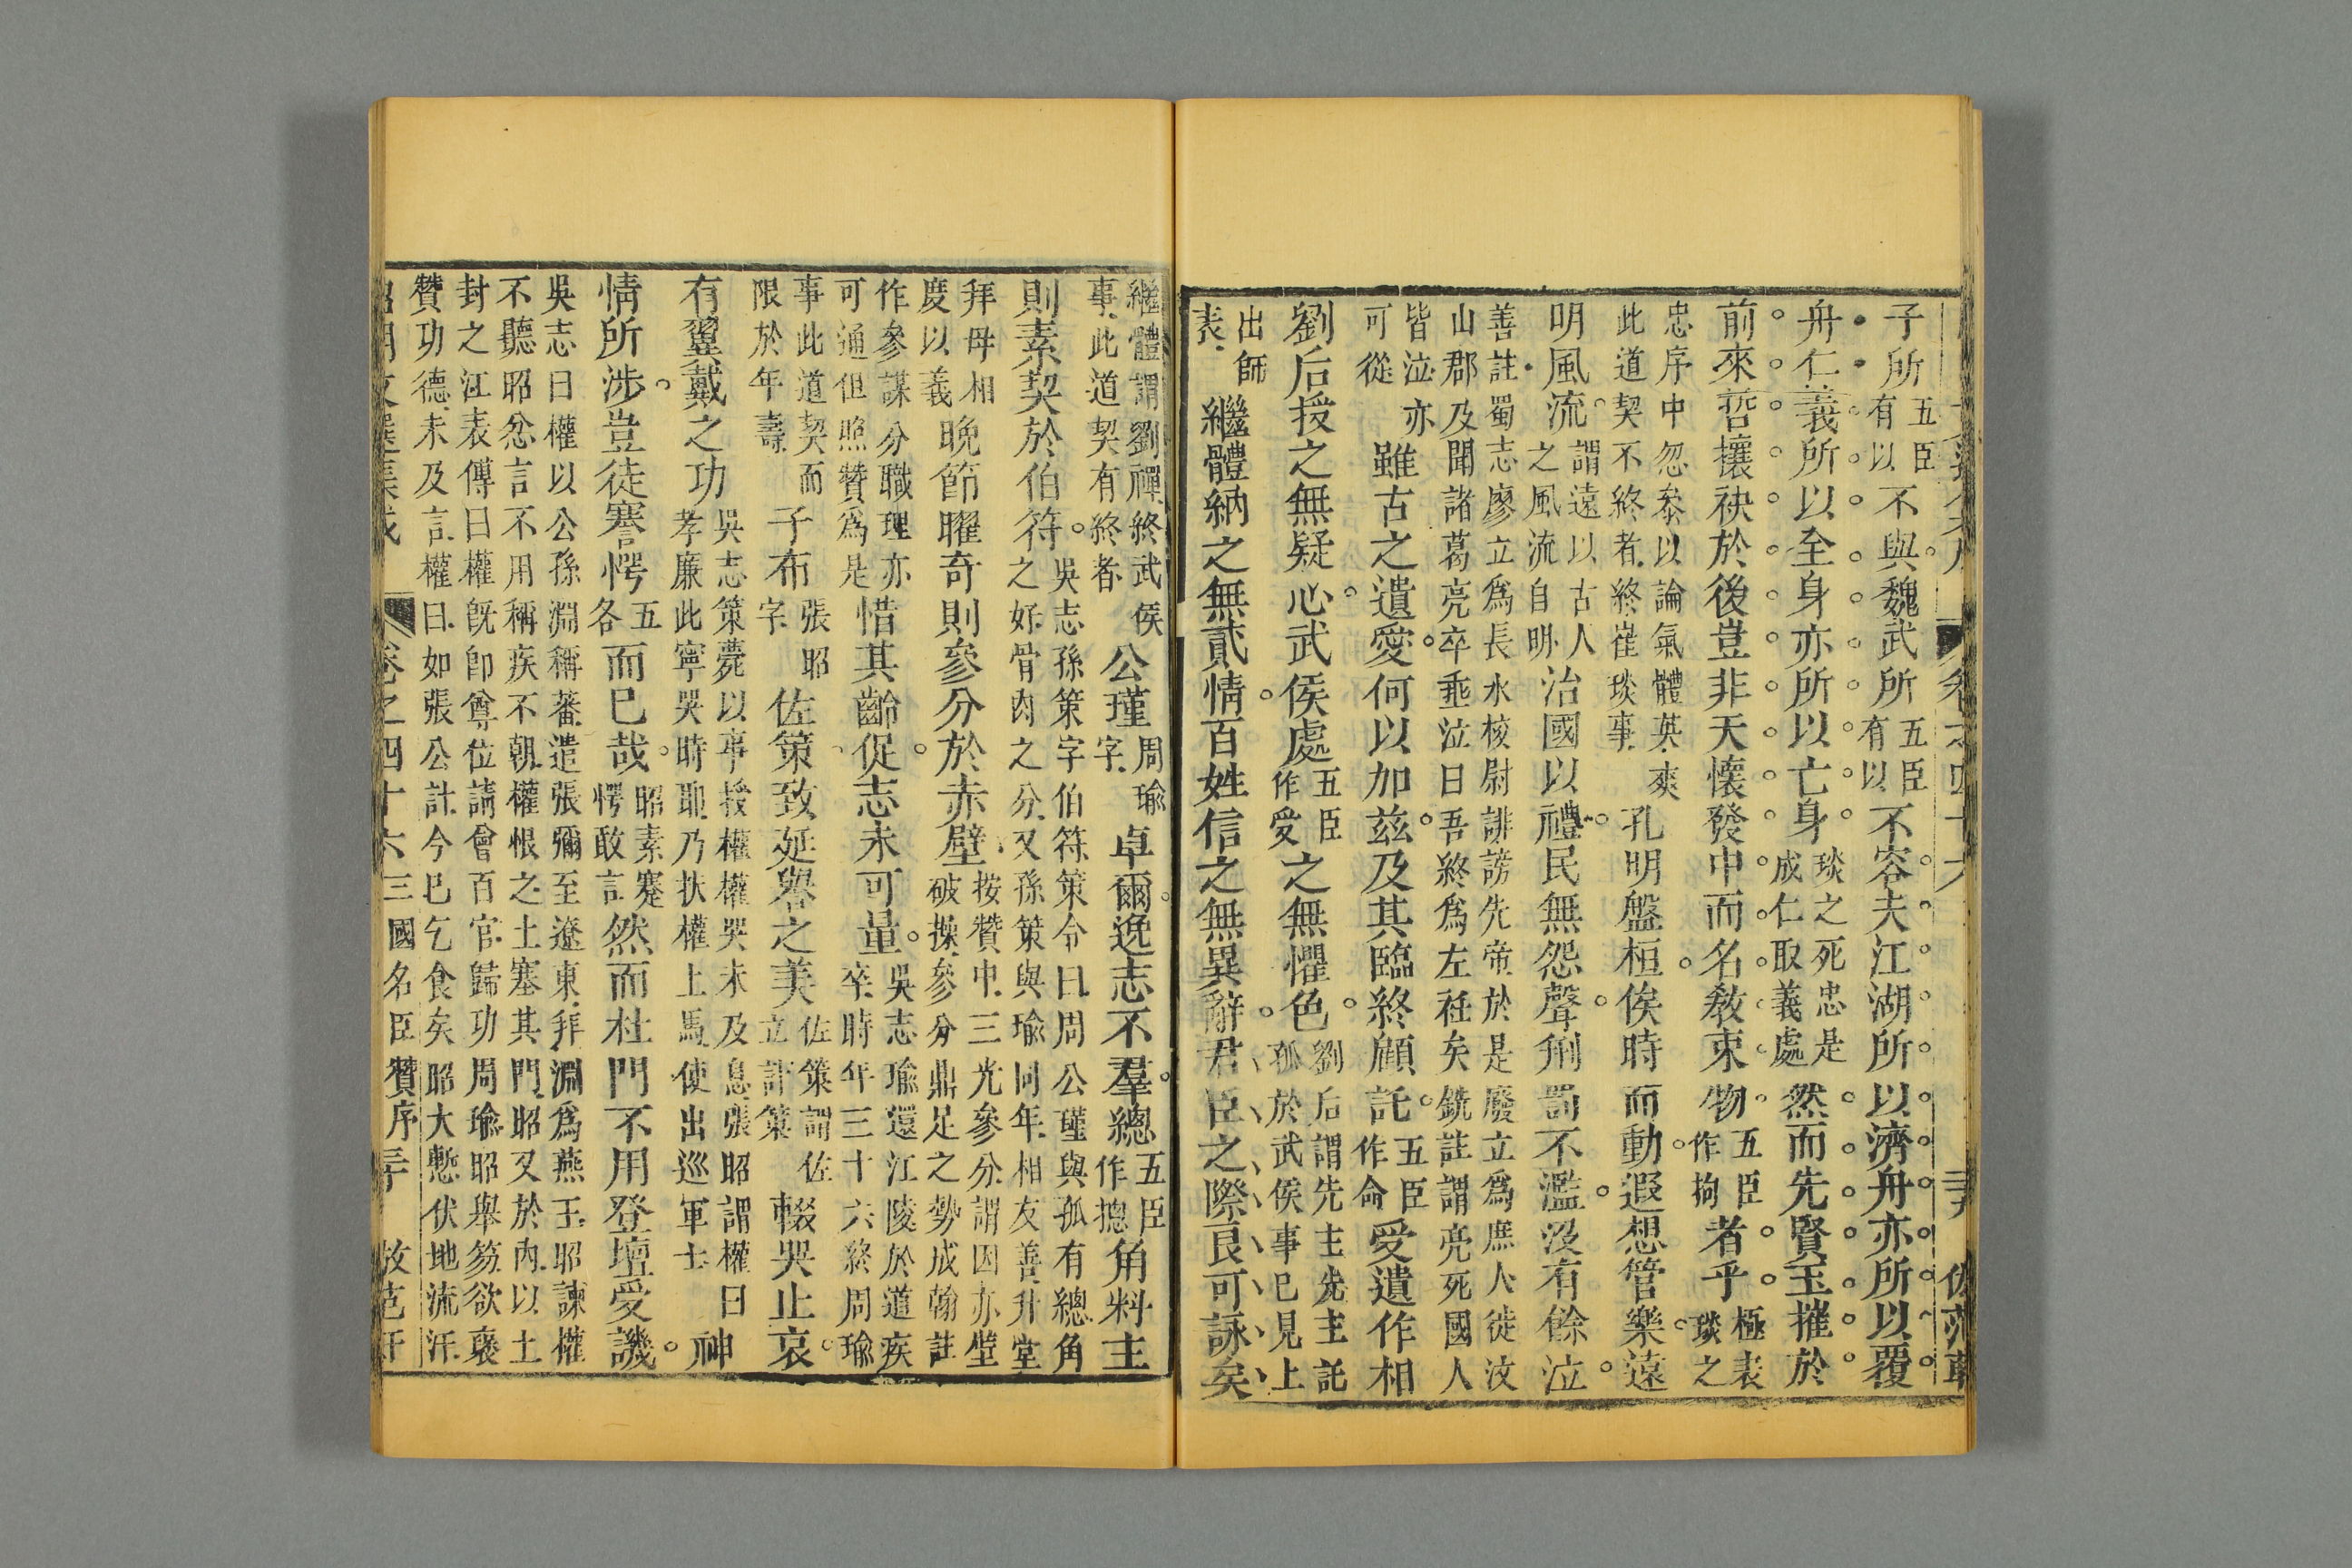 子所五臣有以不與魏武所五臣有以不容夫江湖所以濟舟亦所以覆
舟仁義所以全身亦所以亡身琰之死忠是成仁取義處然而先賢玉摧於
前來哲攘袂於後豈非天懷發中而名教束物五臣作拘者乎極表琰之
忠序中忽叅以論氣體英爽此道契不終者終崔琰事孔明盤桓俟時而動遐想管樂遠
明風流謂遠以古人之風流自明治國以禮民無怨聲刑罰不濫沒有餘泣
善註蜀志廖立爲長水校尉誹謗先帝於是廢立爲庶人徙汶山郡及聞諸葛亮卒垂泣曰吾終爲左衽矣銑註謂亮死國人
皆泣亦可從雖古之遺愛何以加茲及其臨終顧託五臣作命受遺作相
劉后授之無疑心武侯處五臣作受之無懼色劉后謂先主先主託孤於武侯事已見上
出師表繼體納之無貳情百姓信之無異辭君臣之際良可詠矣
繼體謂劉禪終武侯事此道契有終者公瑾周瑜字卓爾逸志不羣總五臣作摠角料主
則素契於伯符吳志孫策字伯符策令曰周公瑾與孤有總角之好骨肉之分又孫策與瑜同年相友善升堂
拜母相度以義晚節曜奇則參分於赤壁按贊中三光參分謂因赤壁破操參分鼎足之勢成翰註
作參謀分職理亦可通但照贊爲是惜其齡促志未可量吳志瑜還江陵於道疾卒時年三十六終周瑜
事此道契而限於年壽子布張昭字佐策致延譽之美佐策謂佐立討策輟哭止哀神
有翼戴之功吳志策薨以事授權權哭未及息張昭謂權曰孝廉此寧哭時耶乃扶權上馬使出巡軍士
情所涉豈徒謇愕五各而已哉昭素蹇愕敢言然而杜門不用登壇受譏
吳志曰權以公孫淵稱蕃遣張彌至遼東拜淵爲燕王昭諫權不聽昭忿言不用稱疾不朝權恨之土塞其門昭又於內以土
封之江表傳曰權旣卽尊位請會百官歸功周瑜昭舉笏欲褒贊功德未及言權曰如張公計今已乞食矣昭大慙伏地流汗
卷之四十六三國名臣贊序